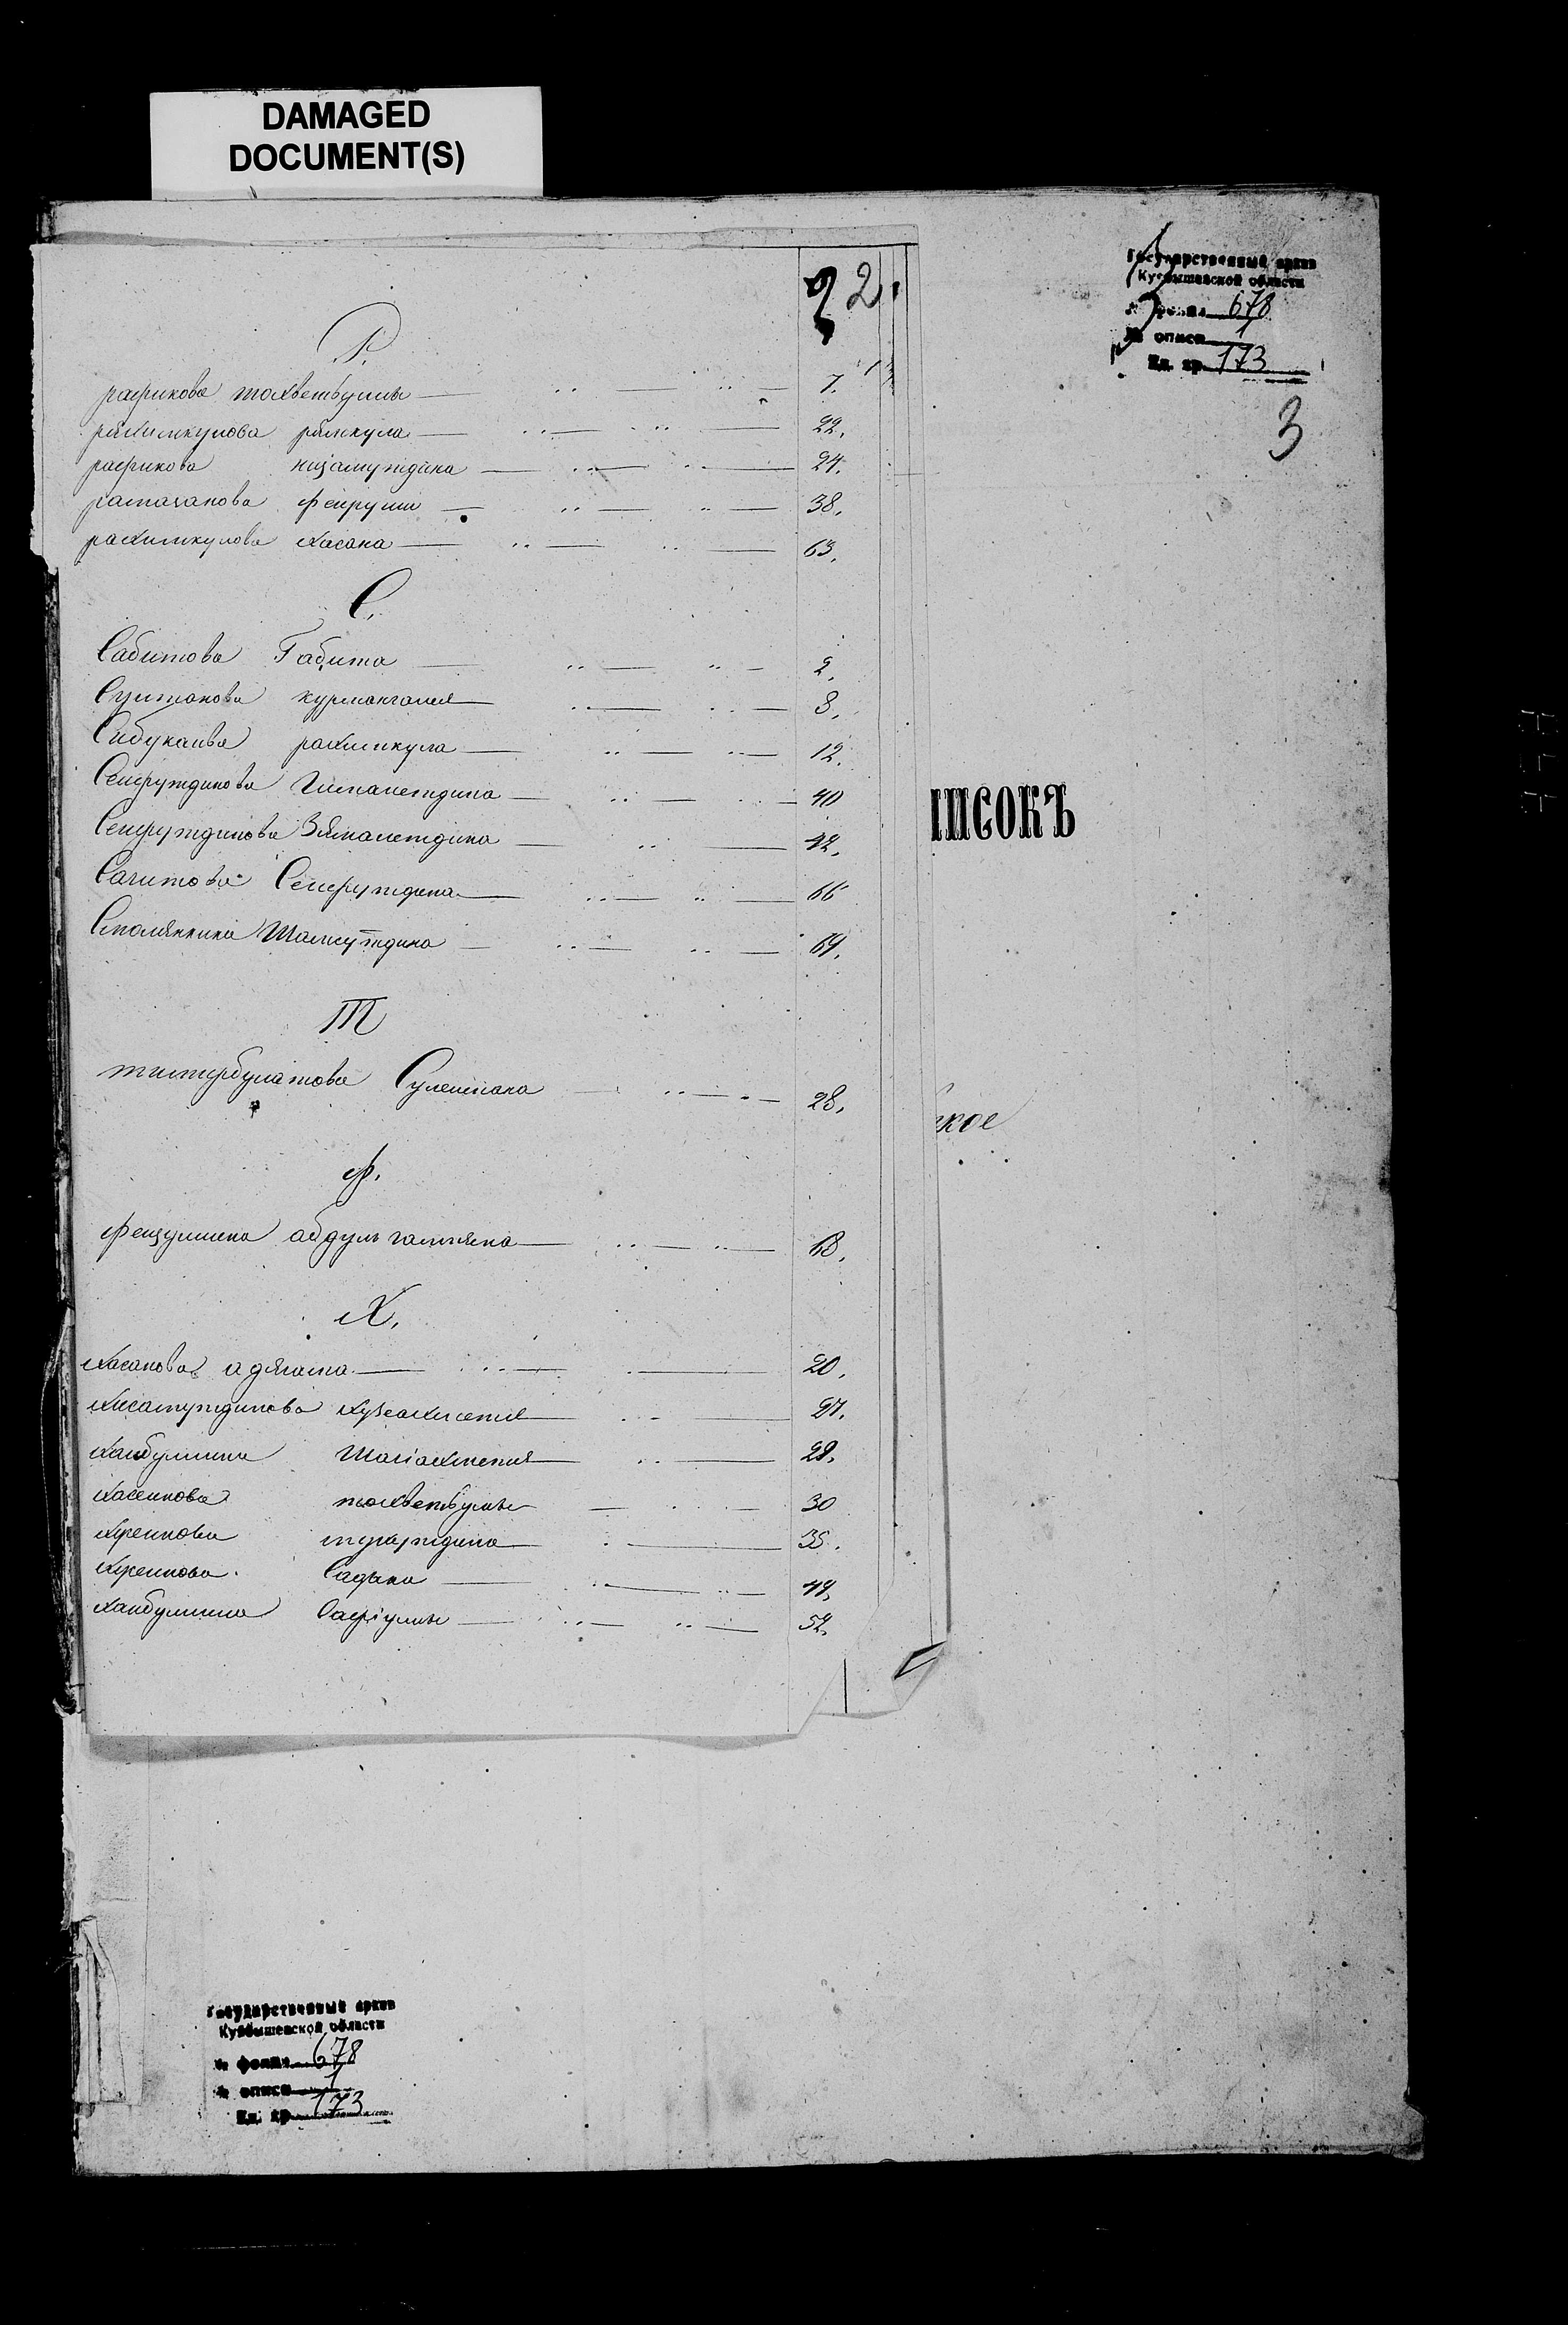 DAMAGED
DOCUMENT(S)
2.
Государственный архив
Куйбышевской области
№ фонда 678
№ описи 1
Ед. хр. 173
3
Р.
рафикова мохветуллы 7.
рахимкулова рямкула 22.
рафикова низамутдина 24.
рамазанова фейруши 38.
рахимкулова хасана 63.
С.
Сабитова Габита 2.
Султанова курмангалея 8.
Сибукаива рахимкула 12.
Сейфутдинова Гиманетдина 40
Сейфутдинова Зяманетдина 42.
Сагитова Сейфутдина 66
Смолянкина Шамсутдина 69.
Т
тимербулатова Сулеймана 28.
Ф.
фейзуллина абдул 68.
Х.
Хасанова адягама 20.
Хисамутдинова 27.
Хайбуллина Шагиахметя 29.
Хасеинова мохветуллы 30
Хусеинова 35.
Хусеинова Садыка 49.
Хайбуллина Сафіуллы 52.
ПИСОКЪ
кое
Государственный архив
Куйбышевской области
№ фонда 678
№ описи 1
Ед. хр. 173